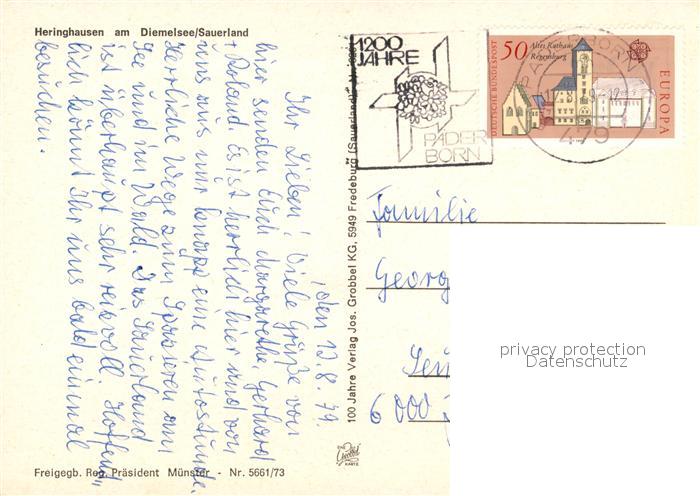 Heringhausen am Diemelsee/Sauerland
, den 13.8.79.
Ihr Lieben! Viele Grüße von
hier senden Euch Margarethe, Gerhard
+ Roland. Es ist herrlich hier und von
uns aus nur knapp eine Autostunde.
Herrliche Wege zum Spazieren am
See und im Wald. Das Sauerland
ist überhaupt sehr reizvoll. Hoffent-
lich könnt Ihr uns bald einmal
besuchen.
Freigegb. Reg. Präsident Münster - Nr. 5661/73
100 Jahre Verlag Jos. Grobbel KG, 5949 Fredeburg (Sauerland)
DIE
Grobbel
KARTE
1200
JAHRE
PADER
BORN
479
50
Altes Rathaus
Regensburg
DEUTSCHE BUNDESPOST
EUROPA
Familie
Georg
6000
privacy protection
Datenschutz